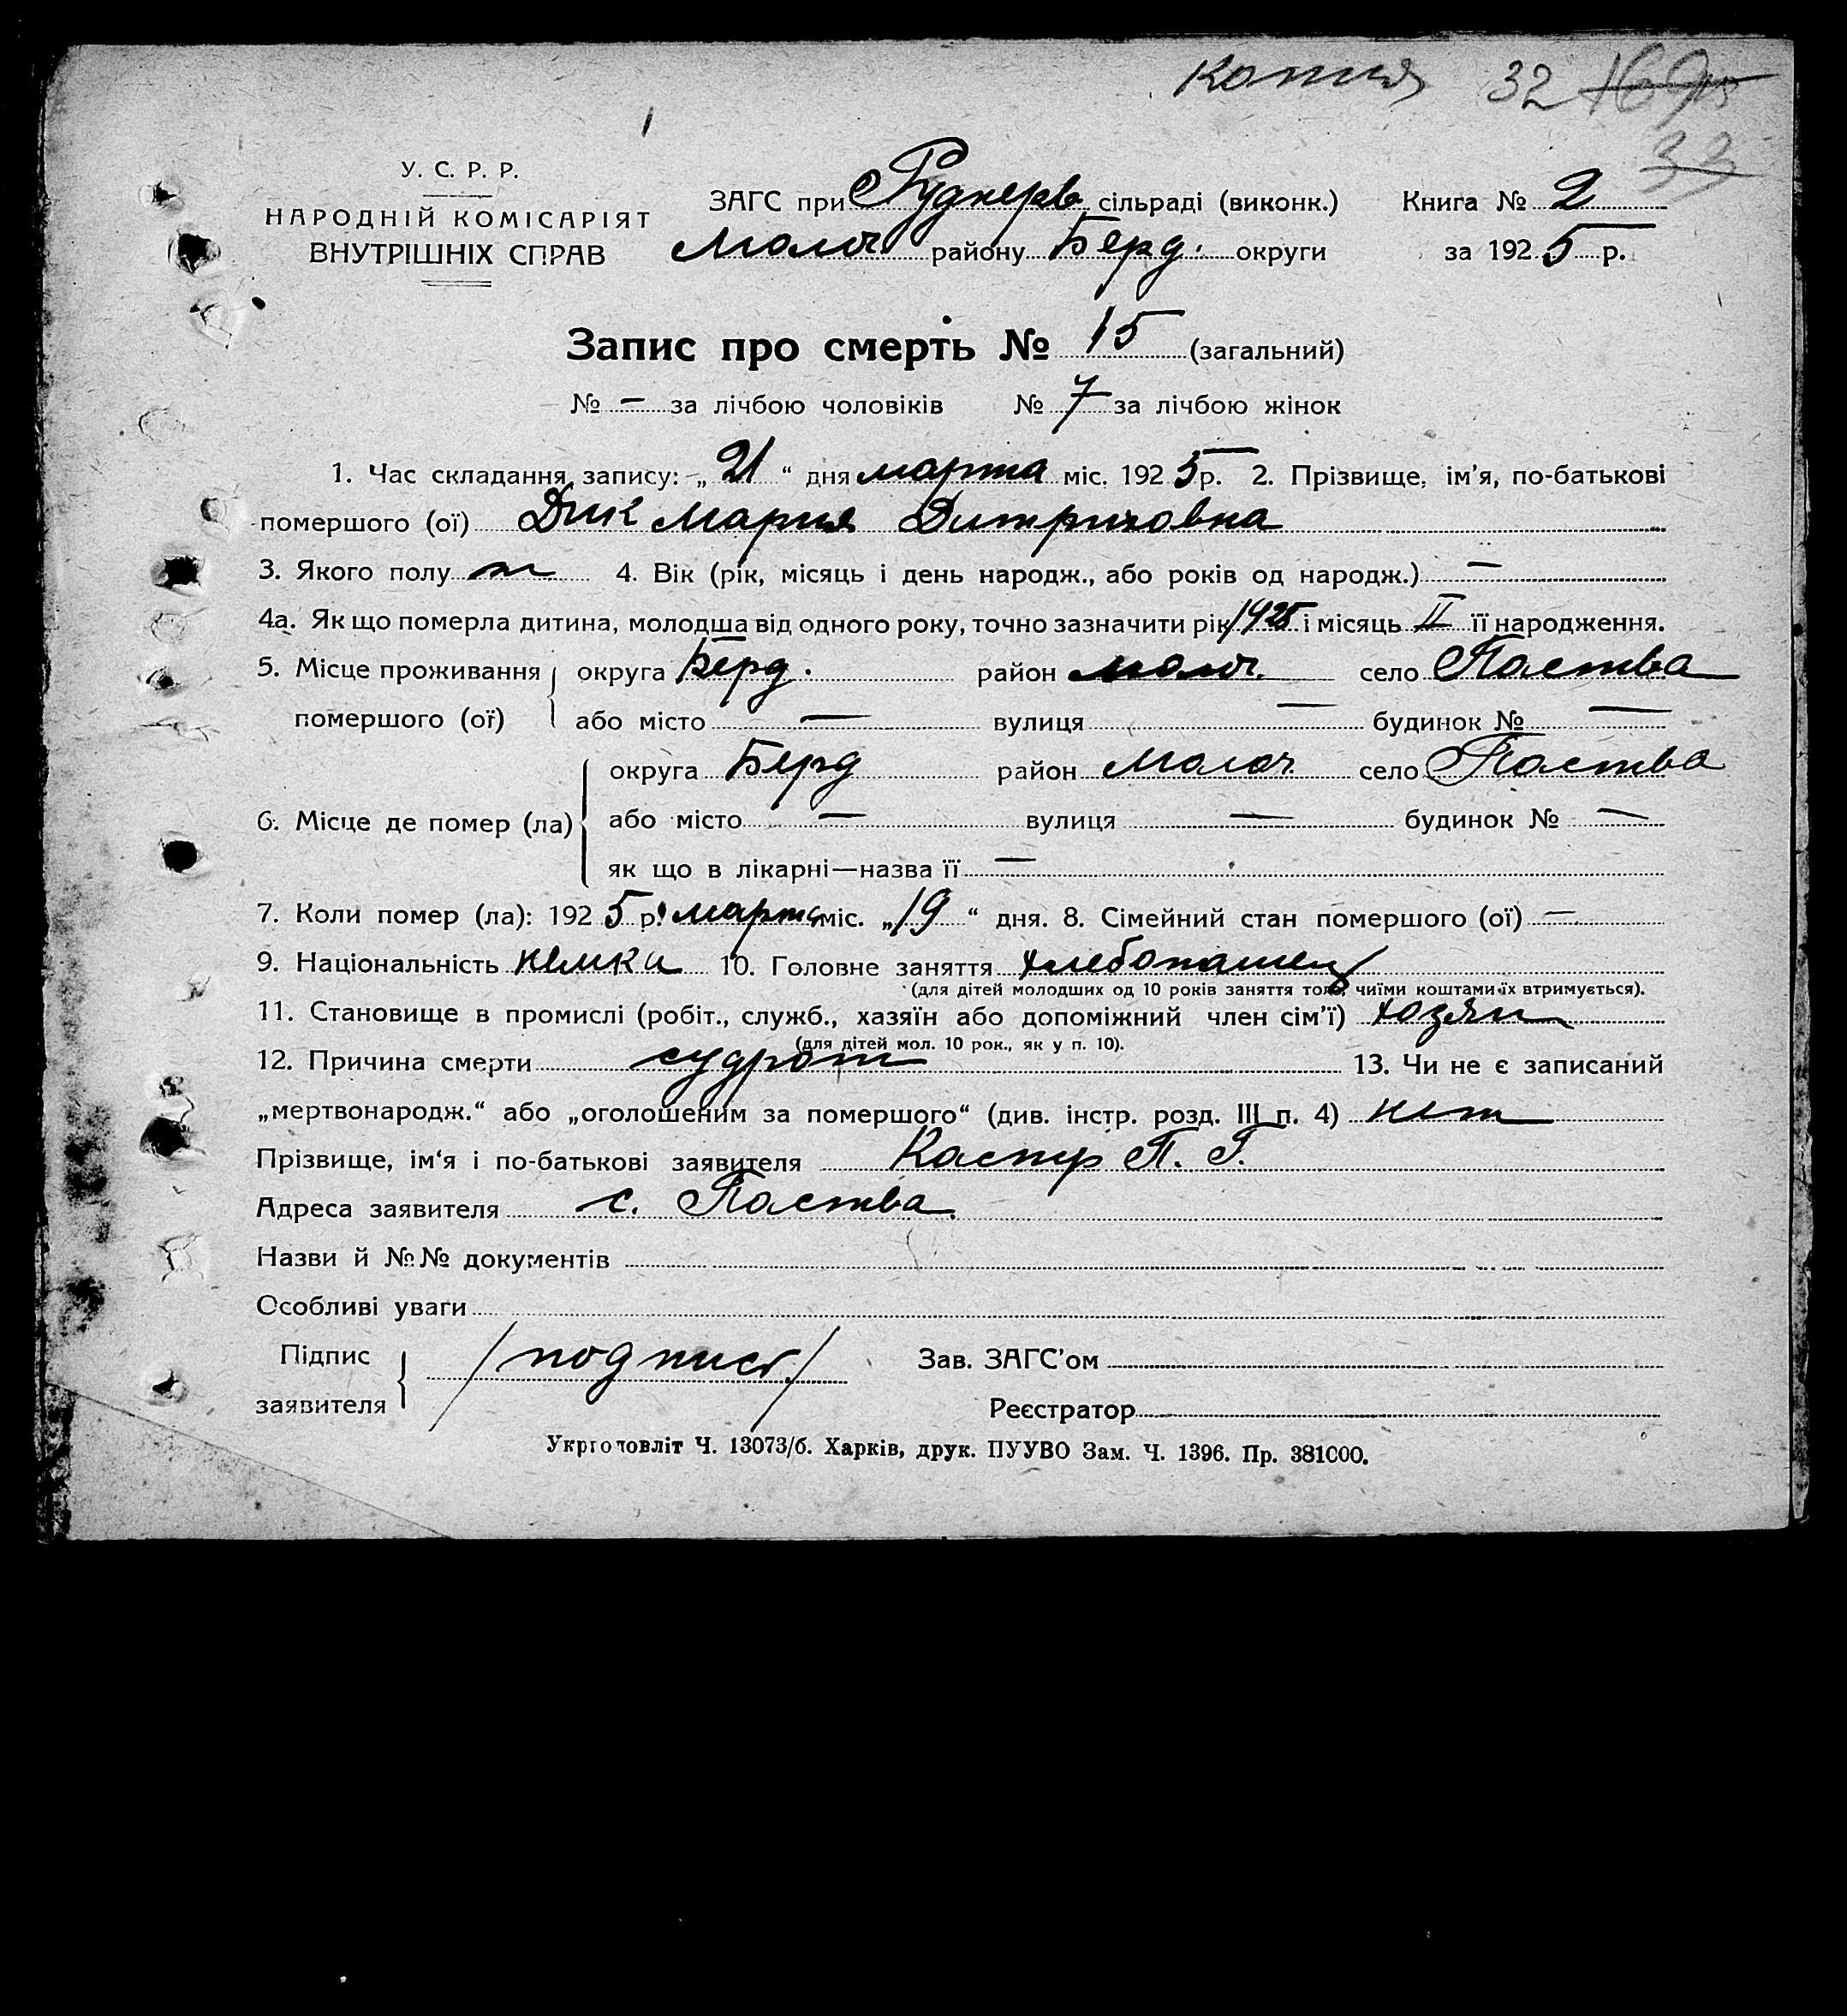 копия 32
33
У. С. Р. Р.
НАРОДНІЙ КОМІСАРІЯТ
ВНУТРІШНІХ СПРАВ
ЗАГС при Руднерв сільраді (виконк.) Книга № 2
Молоч району Берд. округи за 1925 р.
Запис про смерть № 15 (загальний)
№ — за лічбою чоловіків № 7 за лічбою жінок
1. Час складання запису: „21“ дня марта міс. 1925 р. 2. Прізвище, ім'я, по-батькові
помершого (ої) Дик Мария Дитриховна
3. Якого полу ж 4. Вік (рік, місяць і день народж., або років од народж.) —
4а. Як що померла дитина, молодша від одного року, точно зазначити рік 1925 і місяць II її народження.
5. Місце проживання округа Берд. район Молоч. село Паства
помершого (ої) або місто — вулиця — будинок № —
округа Берд район Молоч. село Паства
6. Місце де помер (ла) або місто — вулиця — будинок № —
як що в лікарні—назва її —
7. Коли помер (ла): 1925 р. марта міс. „19“ дня. 8. Сімейний стан помершого (ої) —
9. Національність немка 10. Головне заняття хлебопашец
(для дітей молодших од 10 років заняття того, чиїми коштами їх втримується).
11. Становище в промислі (робіт., служб., хазяїн або допоміжний член сім'ї) хозяин
(для дітей мол. 10 рок., як у п. 10).
12. Причина смерти судрот 13. Чи не є записаний
„мертвонародж.“ або „оголошеним за помершого“ (див. інстр. розд. III п. 4) нет
Прізвище, ім'я і по-батькові заявителя П. Г.
Адреса заявителя с. Паства.
Назви й №№ документів
Особливі уваги
Підпис /подпись/ Зав. ЗАГС'ом
заявителя Реєстратор
Укрголовліт Ч. 13073/б. Харків, друк. ПУУВО Зам. Ч. 1396. Пр. 381000.